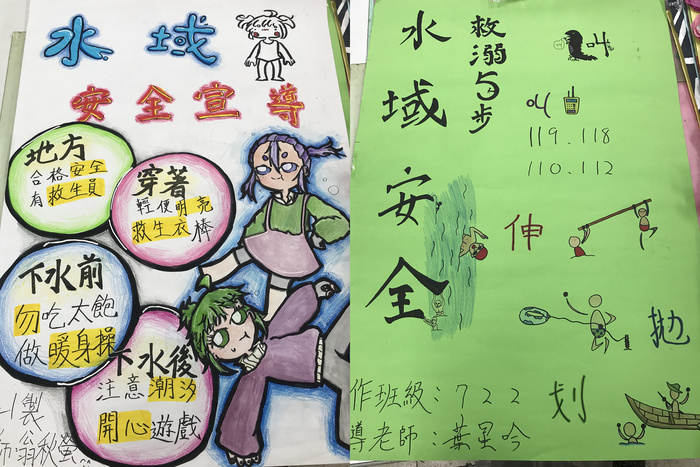 水域
安全宣導
地方
合格安全
有救生員
穿著
輕便明亮
救生衣棒
下水前
勿吃太飽
做暖身操
下水後
注意潮汐
開心遊戲
製
翁秋螢
水域安全
救溺5步
叫
叫
119.118
110.112
伸
拋
划
作班級：722
導老師：葉星吟